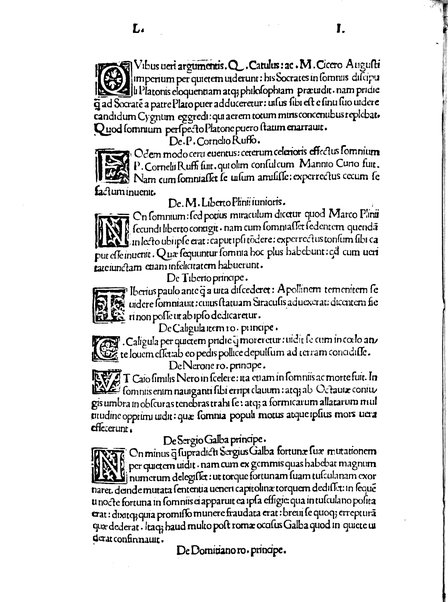 L. I.
QVibus ueri argumentis. Q. Catulus: ac. M. Cicero Augusti
imperium per quietem uiderunt: his Socrates in somnis discipu
li Platonis eloquentiam atq; philosophiam præuidit. nam pridie
q̃ ad Socratẽ a patre Plato puer adduceretur: uisus sibi est e sinu suo uidere
candidum Cygnum egredi: qui aerem totum miris concentibus replebat.
Quod somnium perspecto Platone puero statum enarrauit.
De. P. Cornelio Ruffo.
EOdem modo certi euentus: ceterum celerioris effectus somnium
P. Cornelii Ruffi fuit. qui olim consul cum Mannio Curio fuit.
Nam cum somniasset se uisum amisisse: experrectus cecum se
factum inuenit.
De. M. Liberto Plinii iunioris.
NOn somnium: sed potius miraculum dicetur quod Marco Plinii
secundi liberto contigit. nam cum somniasset sedentem quendã
in lecto ubi ipse erat: caput ipsi tõdere: experrectus tonsum sibi ca
put esse inuenit. Quæ sequuntur somnia hoc plus habebunt: q̃d cum ueri
tate iunctam etiam infelicitatem habuerunt.
De Tiberio principe.
TIberius paulo ante q̃ a uita discederet: Apollinem temenitem se
uidere somniauit: cuius statuam Siracusis aduexerat: dicentem fie
ri non posse ut ab ipso dedicaretur.
De Caligula item ro. principe.
CCaligula per quietem pridie q̃ moreretur: uidit se cum in cœlo an/
te Iouem esset ab eo pedis pollice depulsum ad terram concidisse.
De Nerone ro. principe.
VT Caio similis Nero in scelere: ita etiam in somniis ac morte fuit. In
somniis enim nauganti sibi eripi clauum: atq; ab Octauia coniu/
gis umbra in obscuras tenebras trahi se: atq; a formicarum allatarum mul
titudine opprimi uidit: quæ somnia populi motus atque ipsius mors uera
effecerunt.
De Sergio Galba principe.
NOn minus q̃ supradicti Sergius Galba fortunæ suæ mutationem
per quietem uidit. nam cum ex gemmis quas habebat magnum
numerum delegisset: ut torque fortunam suam tusculanam exor
naret. deinde mutata sententia ueneri capitolinæ torquem dedisset: in sequẽ
ti nocte fortuna in somniis ei apparuit ea ipsa effigie: qua in tusculano posita
erat: dixitq; qua promisso munere fraudata erat: breui se quoq; erepturã
quæ dederat. Itaq; haud multo post romæ occisus Galba quod in quiete ui
derat confirmauit.
De Domitiano ro. principe.